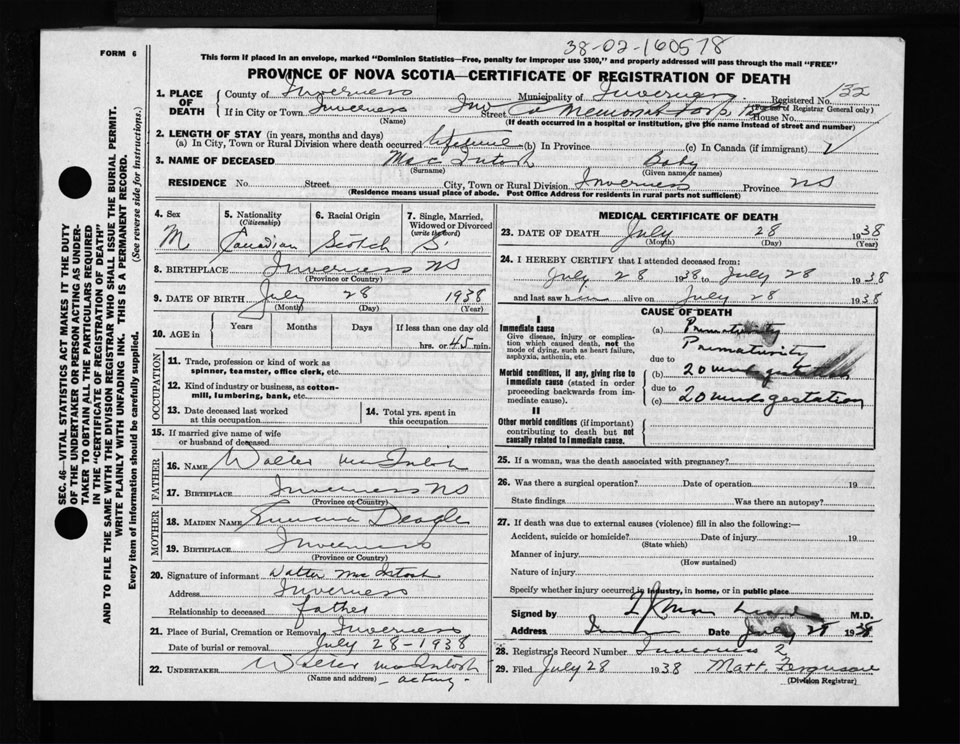 38-02-160578
FORM 6
This form if placed in an envelope, marked "Dominion Statistics—Free, penalty for improper use $300," and properly addressed will pass through the mail "FREE"
PROVINCE OF NOVA SCOTIA—CERTIFICATE OF REGISTRATION OF DEATH
SEC. 46—VITAL STATISTICS ACT MAKES IT THE DUTY
OF THE UNDERTAKER OR PERSON ACTING AS UNDER-
TAKER TO OBTAIN ALL THE PARTICULARS REQUIRED
IN THE "CERTIFICATE OF REGISTRATION OF DEATH"
AND TO FILE THE SAME WITH THE DIVISION REGISTRAR WHO SHALL ISSUE THE BURIAL PERMIT.
WRITE PLAINLY WITH UNFADING INK. THIS IS A PERMANENT RECORD.
Every item of information should be carefully supplied. (See reverse side for instructions.)
1. PLACE OF DEATH County of Inverness Municipality of Inverness Registered No. 132
(For use of Registrar General only)
If in City or Town Inverness Street Memorial House No.
(Name) (If death occurred in a hospital or institution, give the name instead of street and number)
2. LENGTH OF STAY (in years, months and days)
(a) In City, Town or Rural Division where death occurred lifetime (b) In Province (c) In Canada (if immigrant)
3. NAME OF DECEASED MacIntosh Baby
(Surname) (Given name or names)
RESIDENCE No. Street City, Town or Rural Division Inverness Province NS
(Residence means usual place of abode. Post Office Address for residents in rural parts not sufficient)
4. Sex M
5. Nationality (Citizenship) Canadian
6. Racial Origin Scotch
7. Single, Married, Widowed or Divorced (write the word) S
8. BIRTHPLACE Inverness NS
(Province or Country)
9. DATE OF BIRTH July 28 1938
(Month) (Day) (Year)
10. AGE in Years Months Days If less than one day old
hrs. or 45 min.
OCCUPATION
11. Trade, profession or kind of work as
spinner, teamster, office clerk, etc.
12. Kind of industry or business, as cotton-
mill, lumbering, bank, etc.
13. Date deceased last worked at this occupation
14. Total yrs. spent in this occupation
15. If married give name of wife
or husband of deceased
FATHER
16. NAME Walter MacIntosh
17. BIRTHPLACE Inverness NS
(Province or Country)
MOTHER
18. MAIDEN NAME Deagle
19. BIRTHPLACE Inverness
(Province or Country)
20. Signature of informant Walter MacIntosh
Address Inverness
Relationship to deceased father
21. Place of Burial, Cremation or Removal Inverness
Date of burial or removal July 28-1938
22. UNDERTAKER Walter MacIntosh
(Name and address) - acting -
MEDICAL CERTIFICATE OF DEATH
23. DATE OF DEATH July 28 1938
(Month) (Day) (Year)
24. I HEREBY CERTIFY that I attended deceased from:
July 28 1938 to July 28 1938
and last saw him alive on July 28 1938
CAUSE OF DEATH
I
Immediate cause
Give disease, injury or complica-
tion which caused death, not the
mode of dying, such as heart failure,
asphyxia, asthenia, etc.
(a) Prematurity
Prematurity
due to
Morbid conditions, if any, giving rise to
immediate cause (stated in order
proceeding backwards from im-
mediate cause).
(b) 20 weeks gestation
due to
(c) 20 weeks gestation
II
Other morbid conditions (if important)
contributing to death but not
causally related to immediate cause.
25. If a woman, was the death associated with pregnancy?
26. Was there a surgical operation? Date of operation 19
State findings Was there an autopsy?
27. If death was due to external causes (violence) fill in also the following:—
Accident, suicide or homicide? Date of injury 19
(State which)
Manner of injury
(How sustained)
Nature of injury
Specify whether injury occurred in industry, in home, or in public place
Signed by M.D.
Address Date July 28 1938
28. Registrar's Record Number Inverness 2
29. Filed July 28 1938 Matt. Ferguson
(Division Registrar)